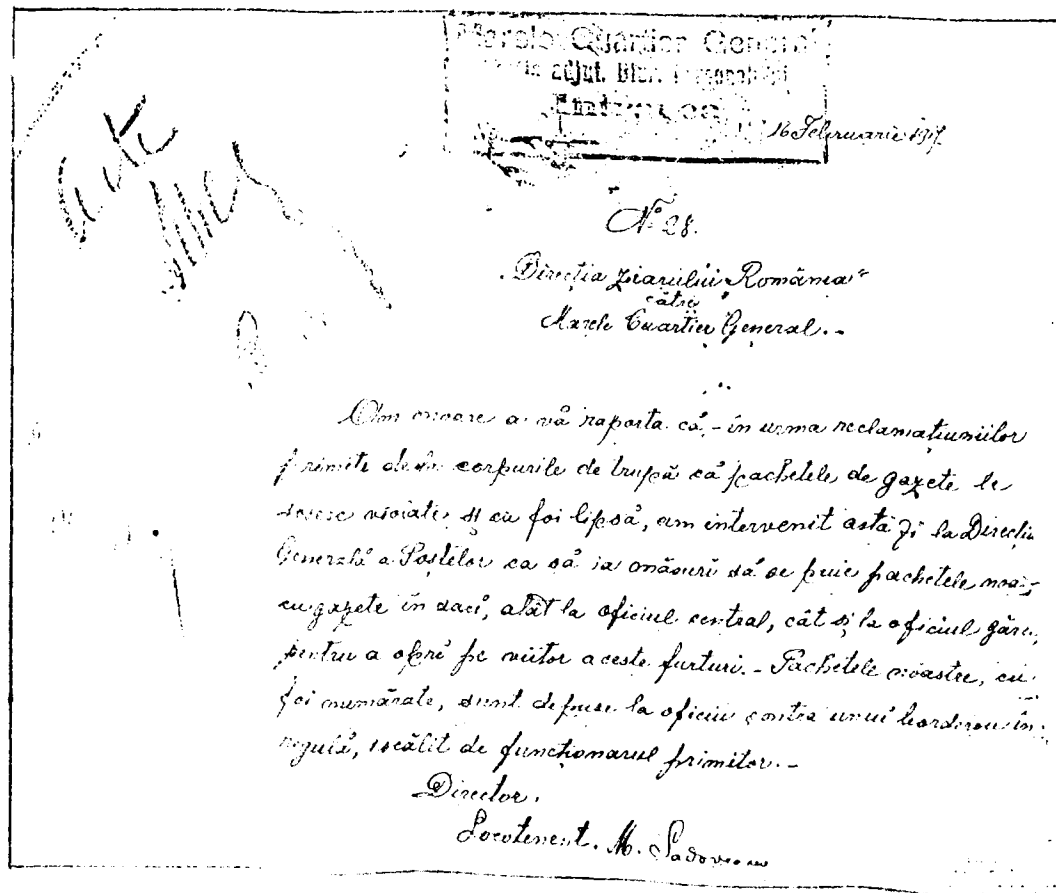 Marele Quartier General
adjut. Biur.
16 Februarie 1917.
No 28.
Direcția ziarului „România"
către
Marele Cuartier General. -
Am onoare a vă raporta că, - în urma reclamațiunilor
primite dela corpurile de trupă că pachetele de gazete le
sosesc violate și cu foi lipsă, am intervenit astă zi la Direcția
Generală a Poștelor ca să ia măsuri să se puie pachetele noastre
cu gazete în saci, atât la oficiul central, cât și la oficiul gărei,
pentru a opri pe viitor aceste furturi. - Pachetele noastre, cu
foi numărate, sunt depuse la oficiu contra unui borderou în
regulă, iscălit de funcționarul primitor. -
Director.
Locotenent. M. Sadoveanu